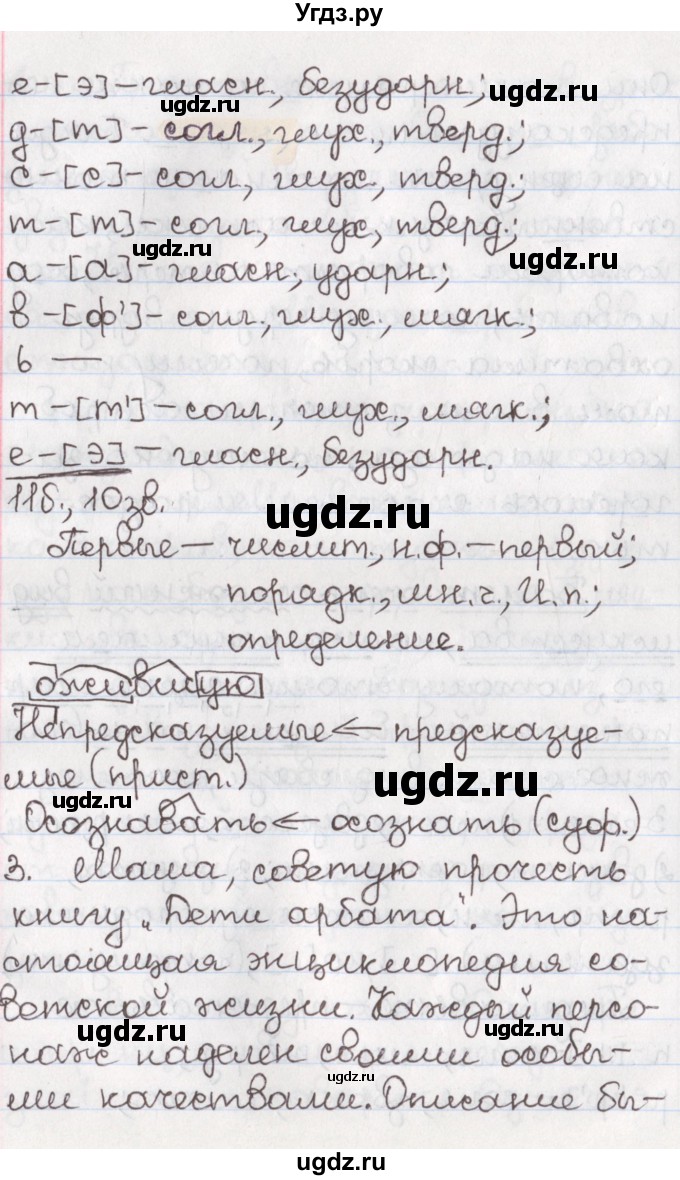 Угдз.ру
е-[э]-гласн., безударн.;
ugdz.ru
ugdz.ru
д-[т]-согл., глух., тверд.;
с-[с]-согл., глух., тверд.;
т-[т]-согл., глух., тверд.;
ugdz.ru
ugdz.ru
а-[а]-гласн., ударн.;
в-[ф']-согл., глух., мягк.;
ь —
т-[т']-согл., глух., мягк.;
е-[э]-гласн., безударн.
11б., 10зв.
ugdz.ru
Первые - числит., н.ф.-первый;
порядк., мн.ч., И.п.;
определение.
ожившую
Непредсказуемые ← предсказуе-
мые (прист.)
ugdz.ru
ugdz.ru
Осознавать ← осознать (суф.)
3. Маша, советую прочесть
книгу „Дети арбата". Это на-
ugdz.ru
стоящая энциклопедия со-
ветской жизни. Каждый персо-
ugdz.ru
наж наделен своими особы-
ugdz.ru
ми качествами. Описание бы-
ugdz.ru